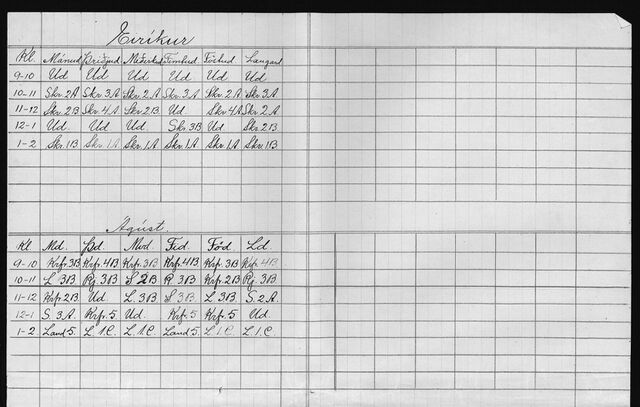 Eiríkur
Kl. Mánud Þriðjud Miðvikud Fimtud Föstud Laugard
9-10 Ud Ud Ud Ud Ud Ud
10-11 Skr. 2A Skr. 3A Skr. 2A Skr. 3A Skr. 2A Skr. 3A
11-12 Skr. 2B Skr. 4A Skr. 2B Ud Skr. 4A Skr. 2A
12-1 Ud. Ud Ud. Skr. 3B Ud. Skr. 2B
1-2 Skr. 1B Skr. 1A Skr. 1A Skr. 1A Skr. 1A Skr. 1B
Ágúst
Kl. Md. Þd. Mvd Fid Föd Ld.
9-10 Krfr. 3B Krfr. 4B Krfr. 3B Krfr. 4B Krfr. 3B Krfr. 4B
10-11 L 3B Rj. 3B S 2B R 3B Krfr. 2B Rj. 3B
11-12 Krfr. 2B Ud. L. 3B S 3B L. 3B S. 2 A.
12-1 S. 3 A. Krfr. 5 Ud. Krfr. 5 Krfr. 5 Ud.
1-2 Land 5. L. 1. C. L. 1. C. Land 5. L 1. C. L 1. C.